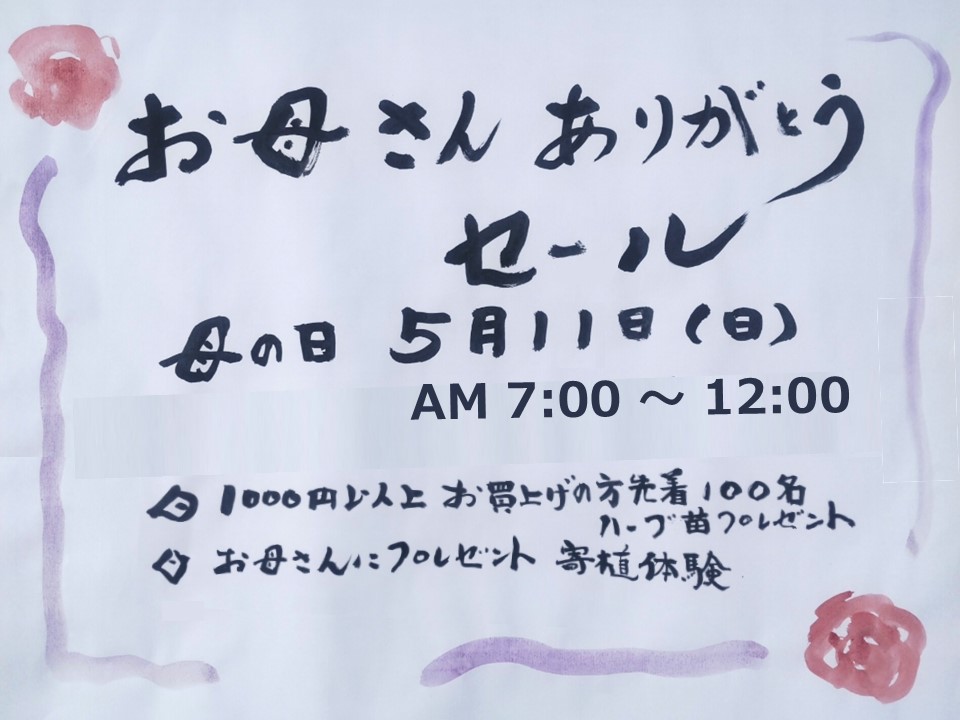 お母さんありがとう
セール
母の日 5月11日(日)
AM 7:00 ～ 12:00
1000円以上 お買上げの方先着100名
ハーブ苗プレゼント
お母さんにプレゼント 寄植体験